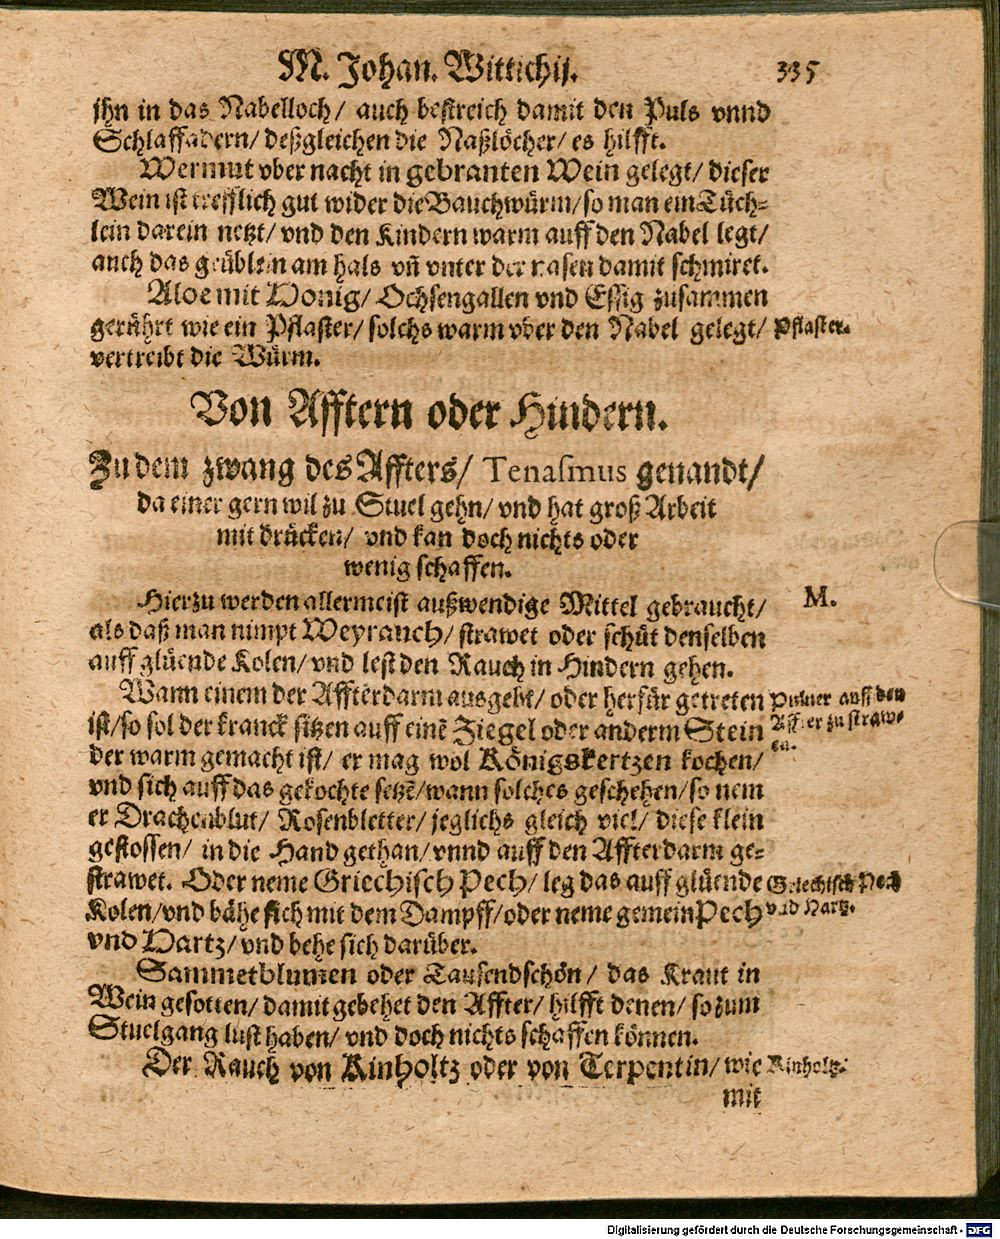 M. Johan. Wittichij. 335
jhn in das Nabelloch/ auch bestreich damit den Puls vnnd
Schlaffadern/ deßgleichen die Naßlöcher/ es hilfft.
Wermut vber nacht in gebranten Wein gelegt/ dieser
Wein ist trefflich gut wider die Bauchwürm/ so man ein Tüch⸗
lein darein netzt/ vnd den Kindern warm auff den Nabel legt/
auch das grüblein am hals vn̄ vnter der nasen damit schmiret.
Aloe mit Honig/ Ochsengallen vnd Essig zusammen
gerührt wie ein Pflaster/ solchs warm vber den Nabel gelegt/ Pflaster.
vertreibt die Würm.
Von Afftern oder Hindern.
Zu dem zwang des Affters/ Tenasmus genandt/
da einer gern wil zu Stuel gehn/ vnd hat groß Arbeit
mit drücken/ vnd kan doch nichts oder
wenig schaffen.
Hierzu werden allermeist außwendige Mittel gebraucht/ M.
als daß man nimpt Weyrauch/ strawet oder schüt denselben
auff glüende Kolen/ vnd lest den Rauch in Hindern gehen.
Wann einem der Affterdarm ausgeht/ oder herfür getreten Puluer auff den
ist/ so sol der kranck sitzen auff einē Ziegel oder anderm Stein Affter zu straw⸗
der warm gemacht ist/ er mag wol Königskertzen kochen/ en.
vnd sich auff das gekochte setzē/ wann solches geschehen/ so nem
er Drachenblut/ Rosenbletter/ jeglichs gleich viel/ diese klein
gestossen/ in die Hand gethan/ vnnd auff den Affterdarm ge⸗
strawet. Oder neme Griechisch Pech/ leg das auff glüende Griechisch Pech
Kolen/ vnd bähe sich mit dem Dampff/ oder neme gemein Pech vnd Hartz.
vnd Hartz/ vnd behe sich darüber.
Sammetblumen oder Tausendschön/ das Kraut in
Wein gesotten/ damit gebehet den Affter/ hilfft denen/ so zum
Stuelgang lust haben/ vnd doch nichts schaffen können.
Der Rauch von Kinholtz oder von Terpentin/ wie Kinholtz.
mit
Digitalisierung gefördert durch die Deutsche Forschungsgemeinschaft - DFG